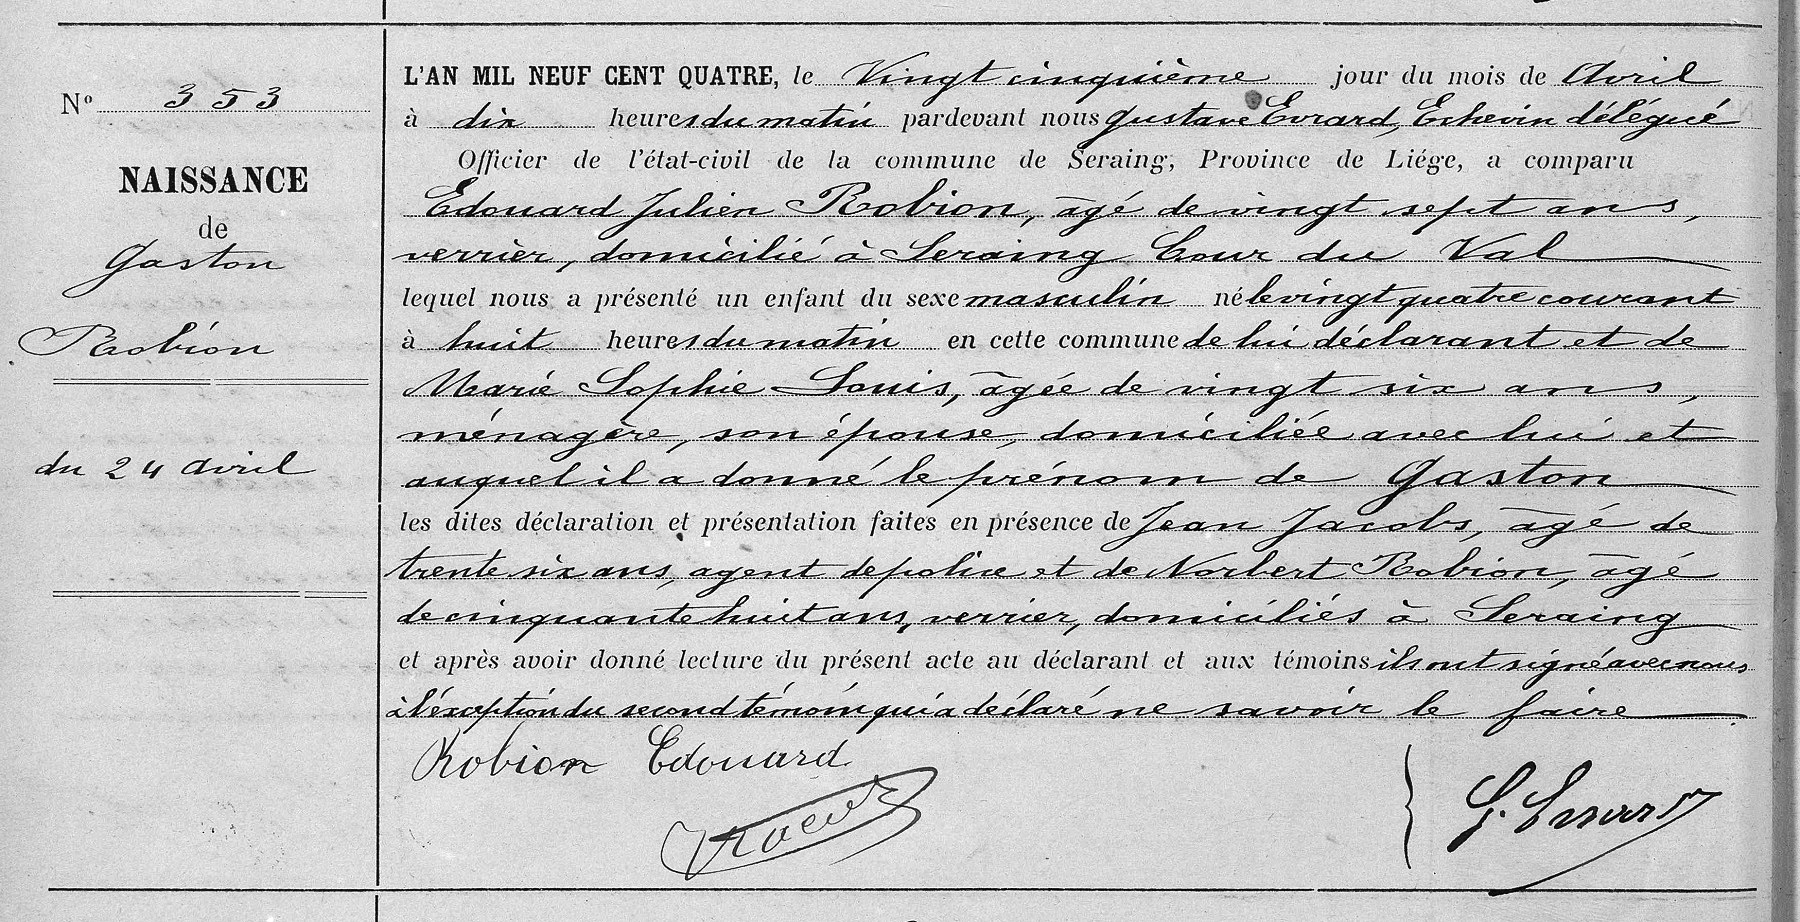 N° 353
NAISSANCE
de
Gaston
Robion
du 24 avril
L'AN MIL NEUF CENT QUATRE, le Vingt cinquième jour du mois de Avril
à dix heures du matin pardevant nous Gustave Evrard, Echevin délégué
Officier de l'état-civil de la commune de Seraing, Province de Liége, a comparu
Edouard Julien Robion, âgé de vingt sept ans,
verrier, domicilié à Seraing Cour du Val
lequel nous a présenté un enfant du sexe masculin né le vingt quatre courant
à huit heures du matin en cette commune de lui déclarant et de
Marie Sophie Louis, âgée de vingt six ans,
ménagère, son épouse, domiciliée avec lui et
auquel il a donné le prénom de Gaston
les dites déclaration et présentation faites en présence de Jean Jacobs, âgé de
trente six ans, agent de police et de Norbert Robion, âgé
de cinquante huit ans, verrier, domiciliés à Seraing
et après avoir donné lecture du présent acte au déclarant et aux témoins ils ont signé avec nous
à l'exception du second témoin qui a déclaré ne savoir le faire.
Robion Edouard
G. Evrard